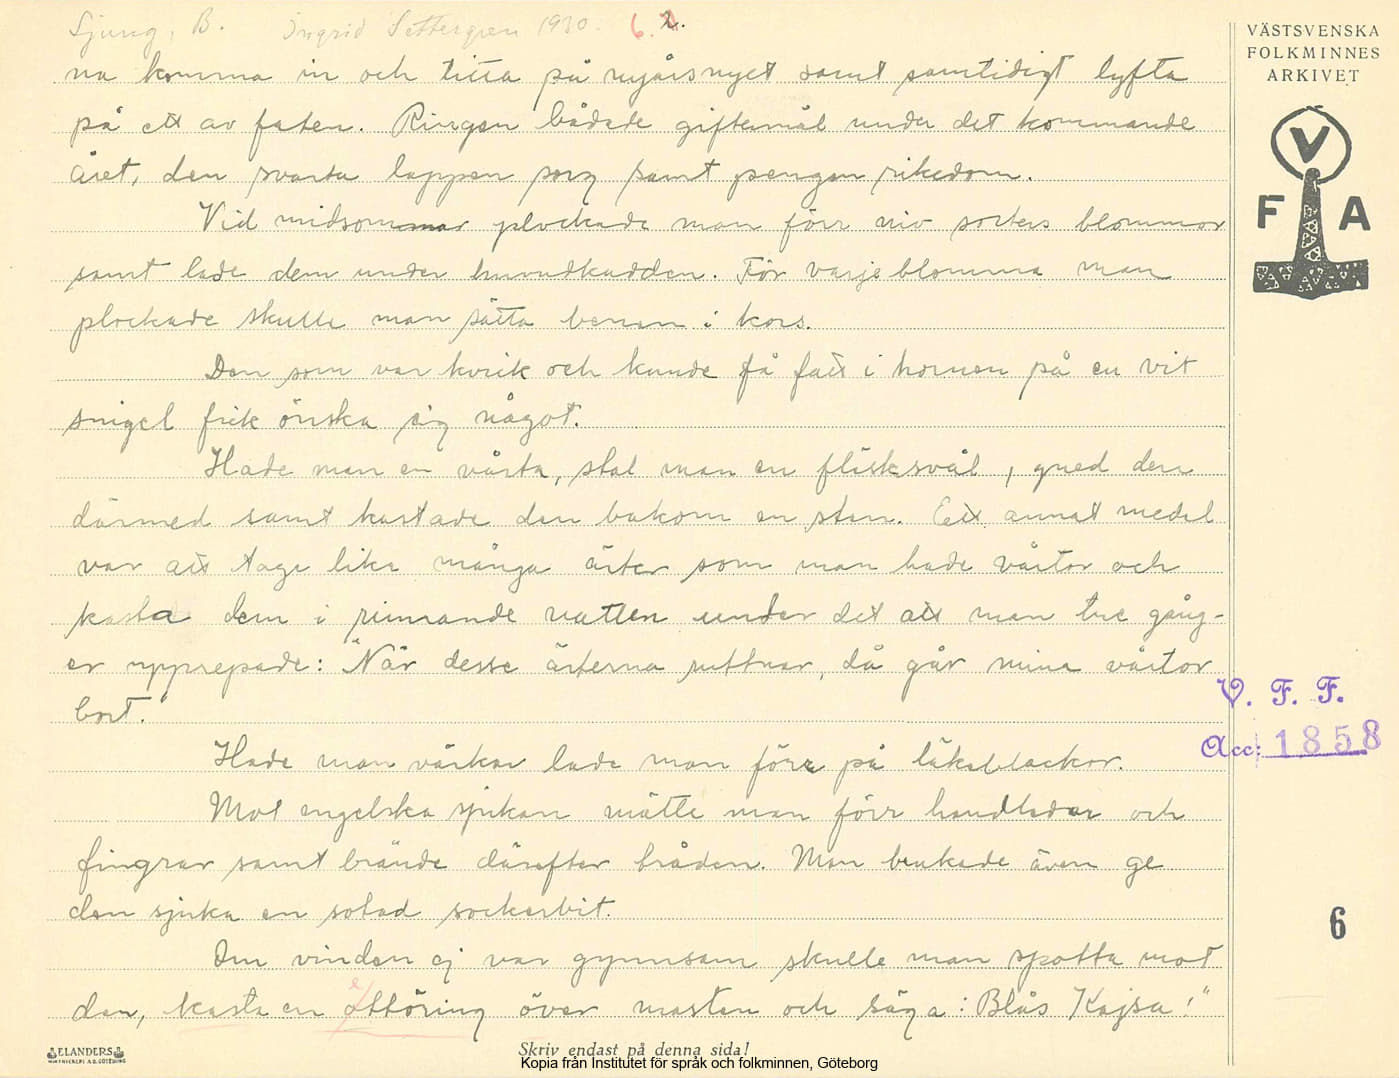 Ljung, B. Ingrid Settergren 1930. 6. 2.
VÄSTSVENSKA
FOLKMINNES
ARKIVET
V
F A
na komma in och titta på nyårsnyet samt samtidigt lyfta
på ett av faten. Ringen bådade giftermål under det kommande
året, den svarta lappen sorg samt pengen rikedom.
Vid midsommar plockade man förr nio sorters blommor
samt lade dem under huvudkudden. För varje blomma man
plockade skulle man sätta benen i kors.
Den som var kvick och kunde få fatt i hornen på en vit
snigel fick önska sig något.
Hade man en vårta, stal man en fläsksvål, gned den
därmed samt kastade den bakom en sten. Ett annat medel
var att taga lika många ärter som man hade vårtor och
kasta dem i rinnande vatten under det att man tre gång-
er upprepade: "När desse ärterna ruttnar, då går mina vårtor
bort."
V. F. F.
Acc: 1858
Hade man värkar lade man förr på läkeblackor.
Mot engelska sjukan mätte man förr handleder och
fingrar samt brände därefter tråden. Man brukade även ge
den sjuka en sotad sockerbit.
6
Om vinden ej var gynnsam skulle man spotta mot
den, kasta en ettöring över masten och säga: Blås Kajsa!"
ELANDERS
Skriv endast på denna sida!
Kopia från Institutet för språk och folkminnen, Göteborg